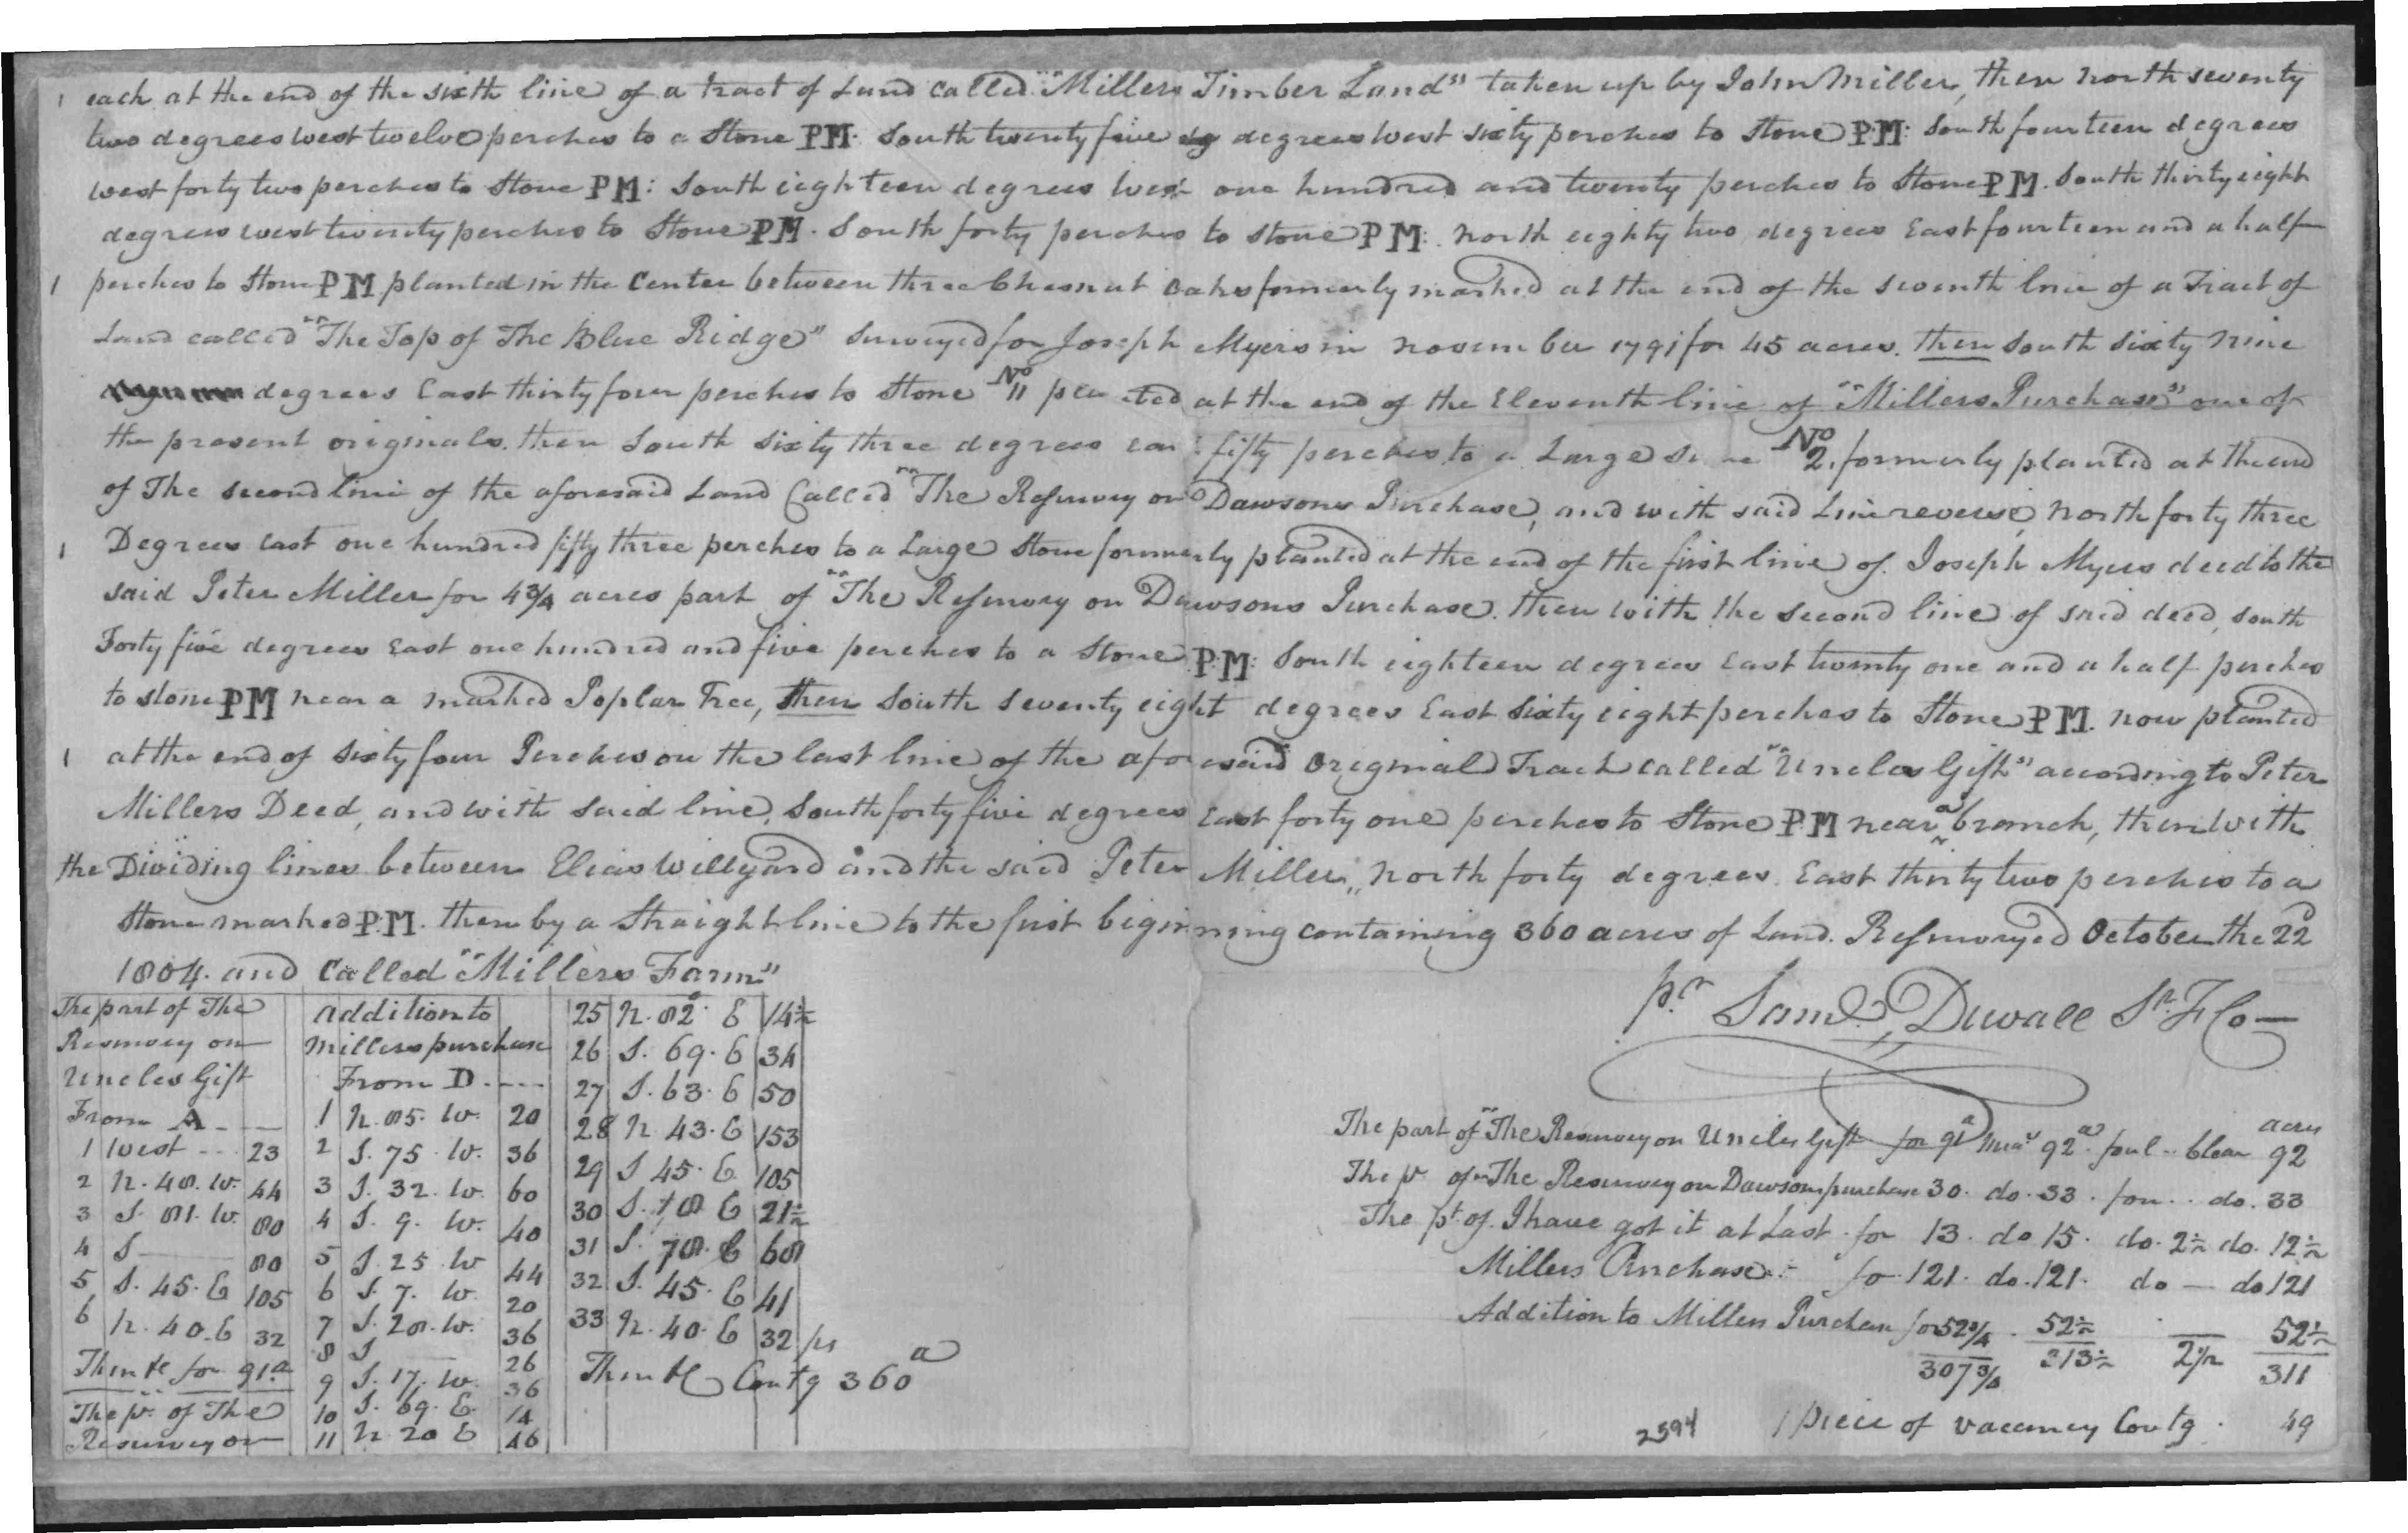 each at the end of the sixth line of a tract of Land called "Millers Timber Land" taken up by John Miller, then North seventy
two degrees west twelve perches to a Stone PM. South twenty five degrees West sixty perches to Stone PM: South fourteen degrees
west forty two perches to Stone PM: South eighteen degrees West one hundred and twenty perches to Stone PM. South thirty eight
degrees west twenty perches to Stone PM. South forty perches to stone PM: North eighty two degrees East fourteen and a half
perches to Stone PM planted in the Center between three Chesnut Oaks formerly marked at the end of the seventh line of a Tract of
Land called "The Top of The Blue Ridge" Surveyed for Joseph Myers in November 1791 for 45 acres. then South Sixty Nine
degrees East thirty four perches to Stone No 11 planted at the end of the Eleventh line of "Millers Purchase" one of
the present originals. then South Sixty three degrees east fifty perches to a Large Stone No 2, formerly planted at the end
of The second line of the aforesaid Land Called "The Resurvey on Dawsons Purchase, and with said Line reverse, North forty three
Degrees East one hundred fifty three perches to a Large Stone formerly planted at the end of the first line of Joseph Myers deed to the
said Peter Miller for 4 3/4 acres part of "The Resurvey on Dawsons Purchase. then with the second line of said deed, South
Forty five degrees East one hundred and five perches to a Stone P.M: South eighteen degrees East twenty one and a half perches
to stone PM near a marked Poplar Tree, then South Seventy eight degrees East Sixty eight perches to Stone PM. now planted
at the end of Sixty four Perches on the last line of the aforesaid Original Tract called "Uncles Gift" according to Peter
Millers Deed, and with said line, South forty five degrees East forty one perches to Stone PM near a branch, then with
the Dividing lines between Elias Willyard and the said Peter Miller, North forty degrees East thirty two perches to a
Stone marked P.M. then by a Straight line to the first beginning containing 360 acres of Land. Resurveyed October the 22d
1804. and Called "Millers Farm"
pr Saml. Duvall Sr. F Co
The part of The
Resurvey on
Uncles Gift
From A
1 West 23
2 N. 48. W. 44
3 S. 81. W. 80
4 S 80
5 S. 45. E 105
6 N. 40. E 32
Thn &c for 91.a
The pt. of The
Resurvey on
addition to
Millers purchase
From D
1 N. 85. W. 20
2 S. 75. W. 36
3 S. 32. W. 60
4 S. 9. W. 40
5 S. 25. W 44
6 S. 7. W. 20
7 S. 28. W. 36
8 S 26
9 S. 17. W. 36
10 S. 69. E. 14
11 N 20 E 46
25 N. 82. E 14½
26 S. 69. E 34
27 S. 63. E 50
28 N. 43. E 153
29 S 45. E 105
30 S. 18 E 21½
31 S. 78. E 68
32 S. 45. E 41
33 N. 40. E 32 ps
Thn &c Contg 360 a
acres
The part of "The Resurvey on Uncles Gift for 91a Meas 92a. foul - Clear 92
The pt of "The Resurvey on Dawsons purchase 30. do. 33. fou. . do. 33
The pt. of I have got it at Last. for 13. do 15. do. 2½ do. 12½
Millers Purchase. for 121. do. 121. do — do 121
Addition to Millers Purchase for 52 3/4 . 52½ — 52½
307 3/4 313½ 2½ 311
2594 1 piece of vacancy Contg. 49